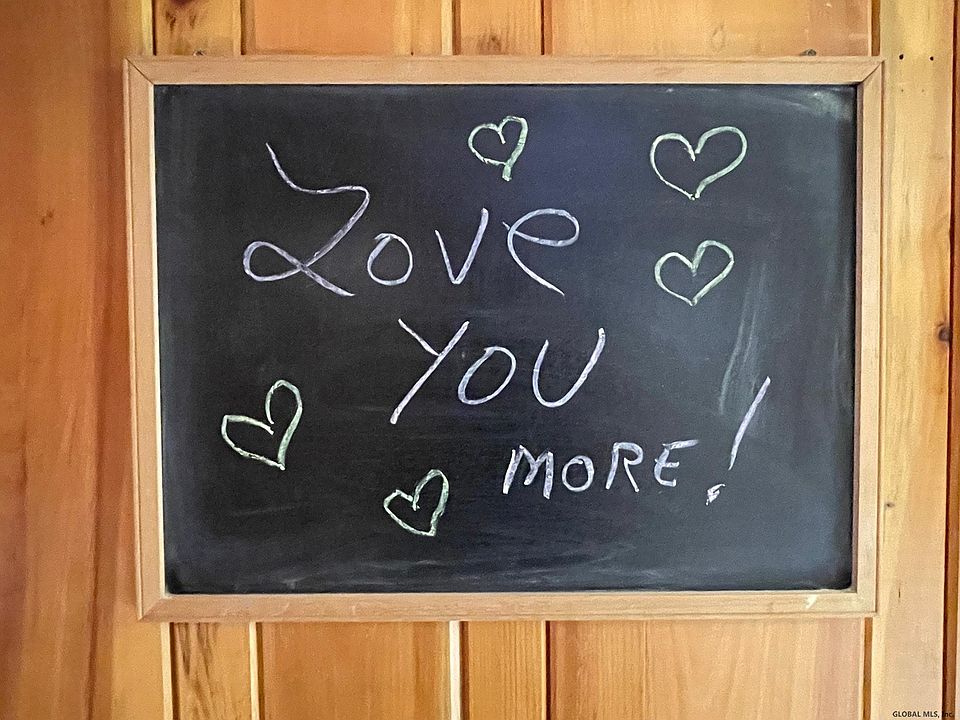 Love
YOU
MORE!
GLOBAL MLS, Inc.